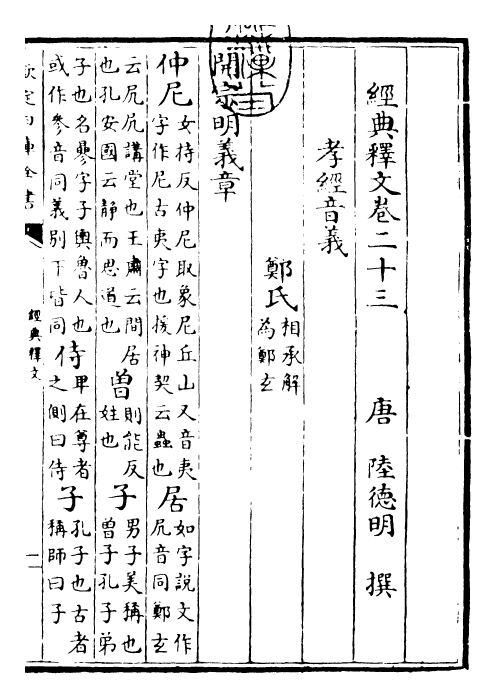 經典釋文卷二十三 唐 陸德明 撰
孝經音義
鄭氏 相承解為鄭玄
開宗明義章
仲尼 女持反仲尼取象尼丘山又音夷字作尼古夷字也援神契云蠱也 居 如字說文作凥音同鄭玄
云凥凥講堂也王肅云閒居也孔安國云静而思道也 曾 則能反姓也 子 男子美稱也曾子孔子弟
子也名曑字子輿魯人也或作參音同義別下皆同 侍 卑在尊者之側曰侍 子 孔子也古者稱師曰子
欽定四庫全書
經典釋文
一